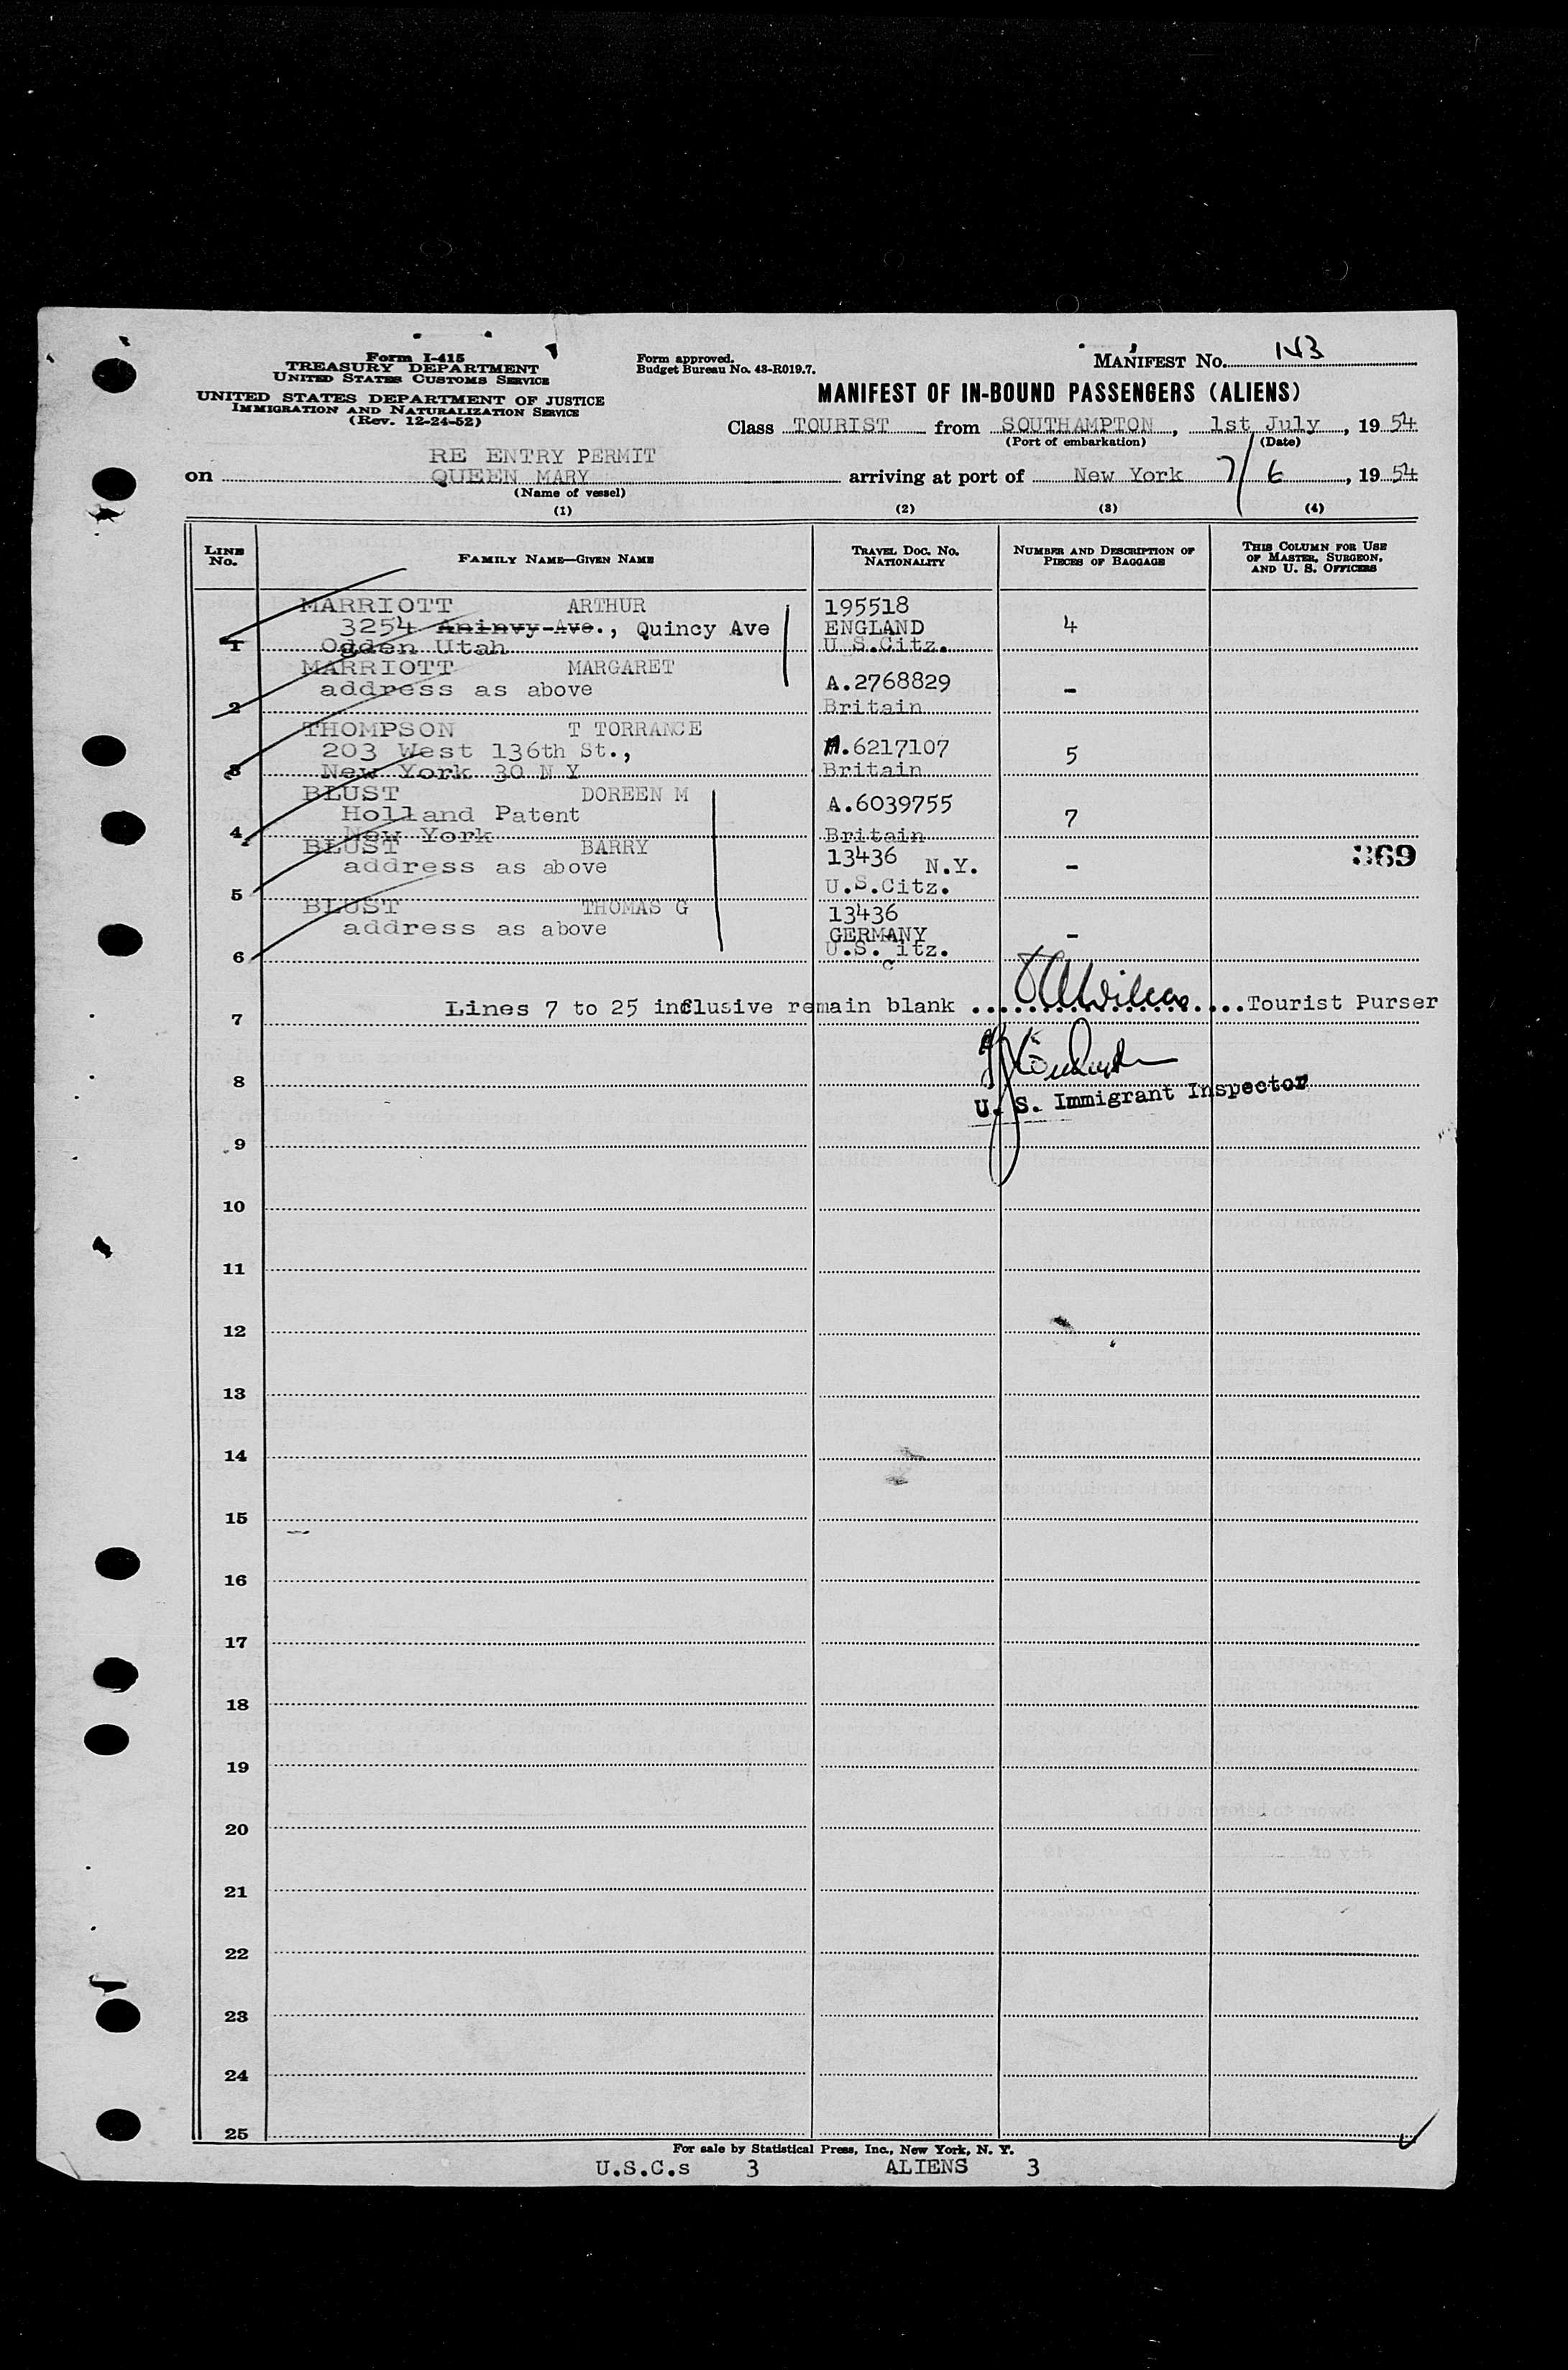 Form I-415
TREASURY DEPARTMENT
UNITED STATES CUSTOMS SERVICE
UNITED STATES DEPARTMENT OF JUSTICE
IMMIGRATION AND NATURALIZATION SERVICE
(Rev. 12-24-52)
Form approved.
Budget Bureau No. 43-R019.7.
MANIFEST No. 143
MANIFEST OF IN-BOUND PASSENGERS (ALIENS)
Class TOURIST from SOUTHAMPTON, 1st July, 1954
(Port of embarkation) (Date)
RE ENTRY PERMIT
on QUEEN MARY arriving at port of New York 7/6, 1954
(Name of vessel)
(1) (2) (3) (4)
LINE No. FAMILY NAME—GIVEN NAME TRAVEL DOC. NO. NATIONALITY NUMBER AND DESCRIPTION OF PIECES OF BAGGAGE THIS COLUMN FOR USE OF MASTER, SURGEON, AND U. S. OFFICERS
MARRIOTT ARTHUR 195518
3254 Aninvy Ave., Quincy Ave ENGLAND 4
1 Ogden Utah U S.Citz.
MARRIOTT MARGARET
address as above A.2768829 -
2 Britain
THOMPSON T TORRANCE
203 West 136th St., A.6217107 5
3 New York 30 N Y Britain
BLUST DOREEN M A.6039755
Holland Patent 7
4 New York Britain
BLUST BARRY 13436 N.Y. 369
address as above -
5 U.S.Citz.
BLUST THOMAS G 13436
address as above GERMANY -
6 U.S. itz.
c
Lines 7 to 25 inclusive remain blank ........ Tourist Purser
7
8
U. S. Immigrant Inspector
9
10
11
12
13
14
15
16
17
18
19
20
21
22
23
24
25
For sale by Statistical Press, Inc., New York, N. Y.
U.S.C.s 3 ALIENS 3